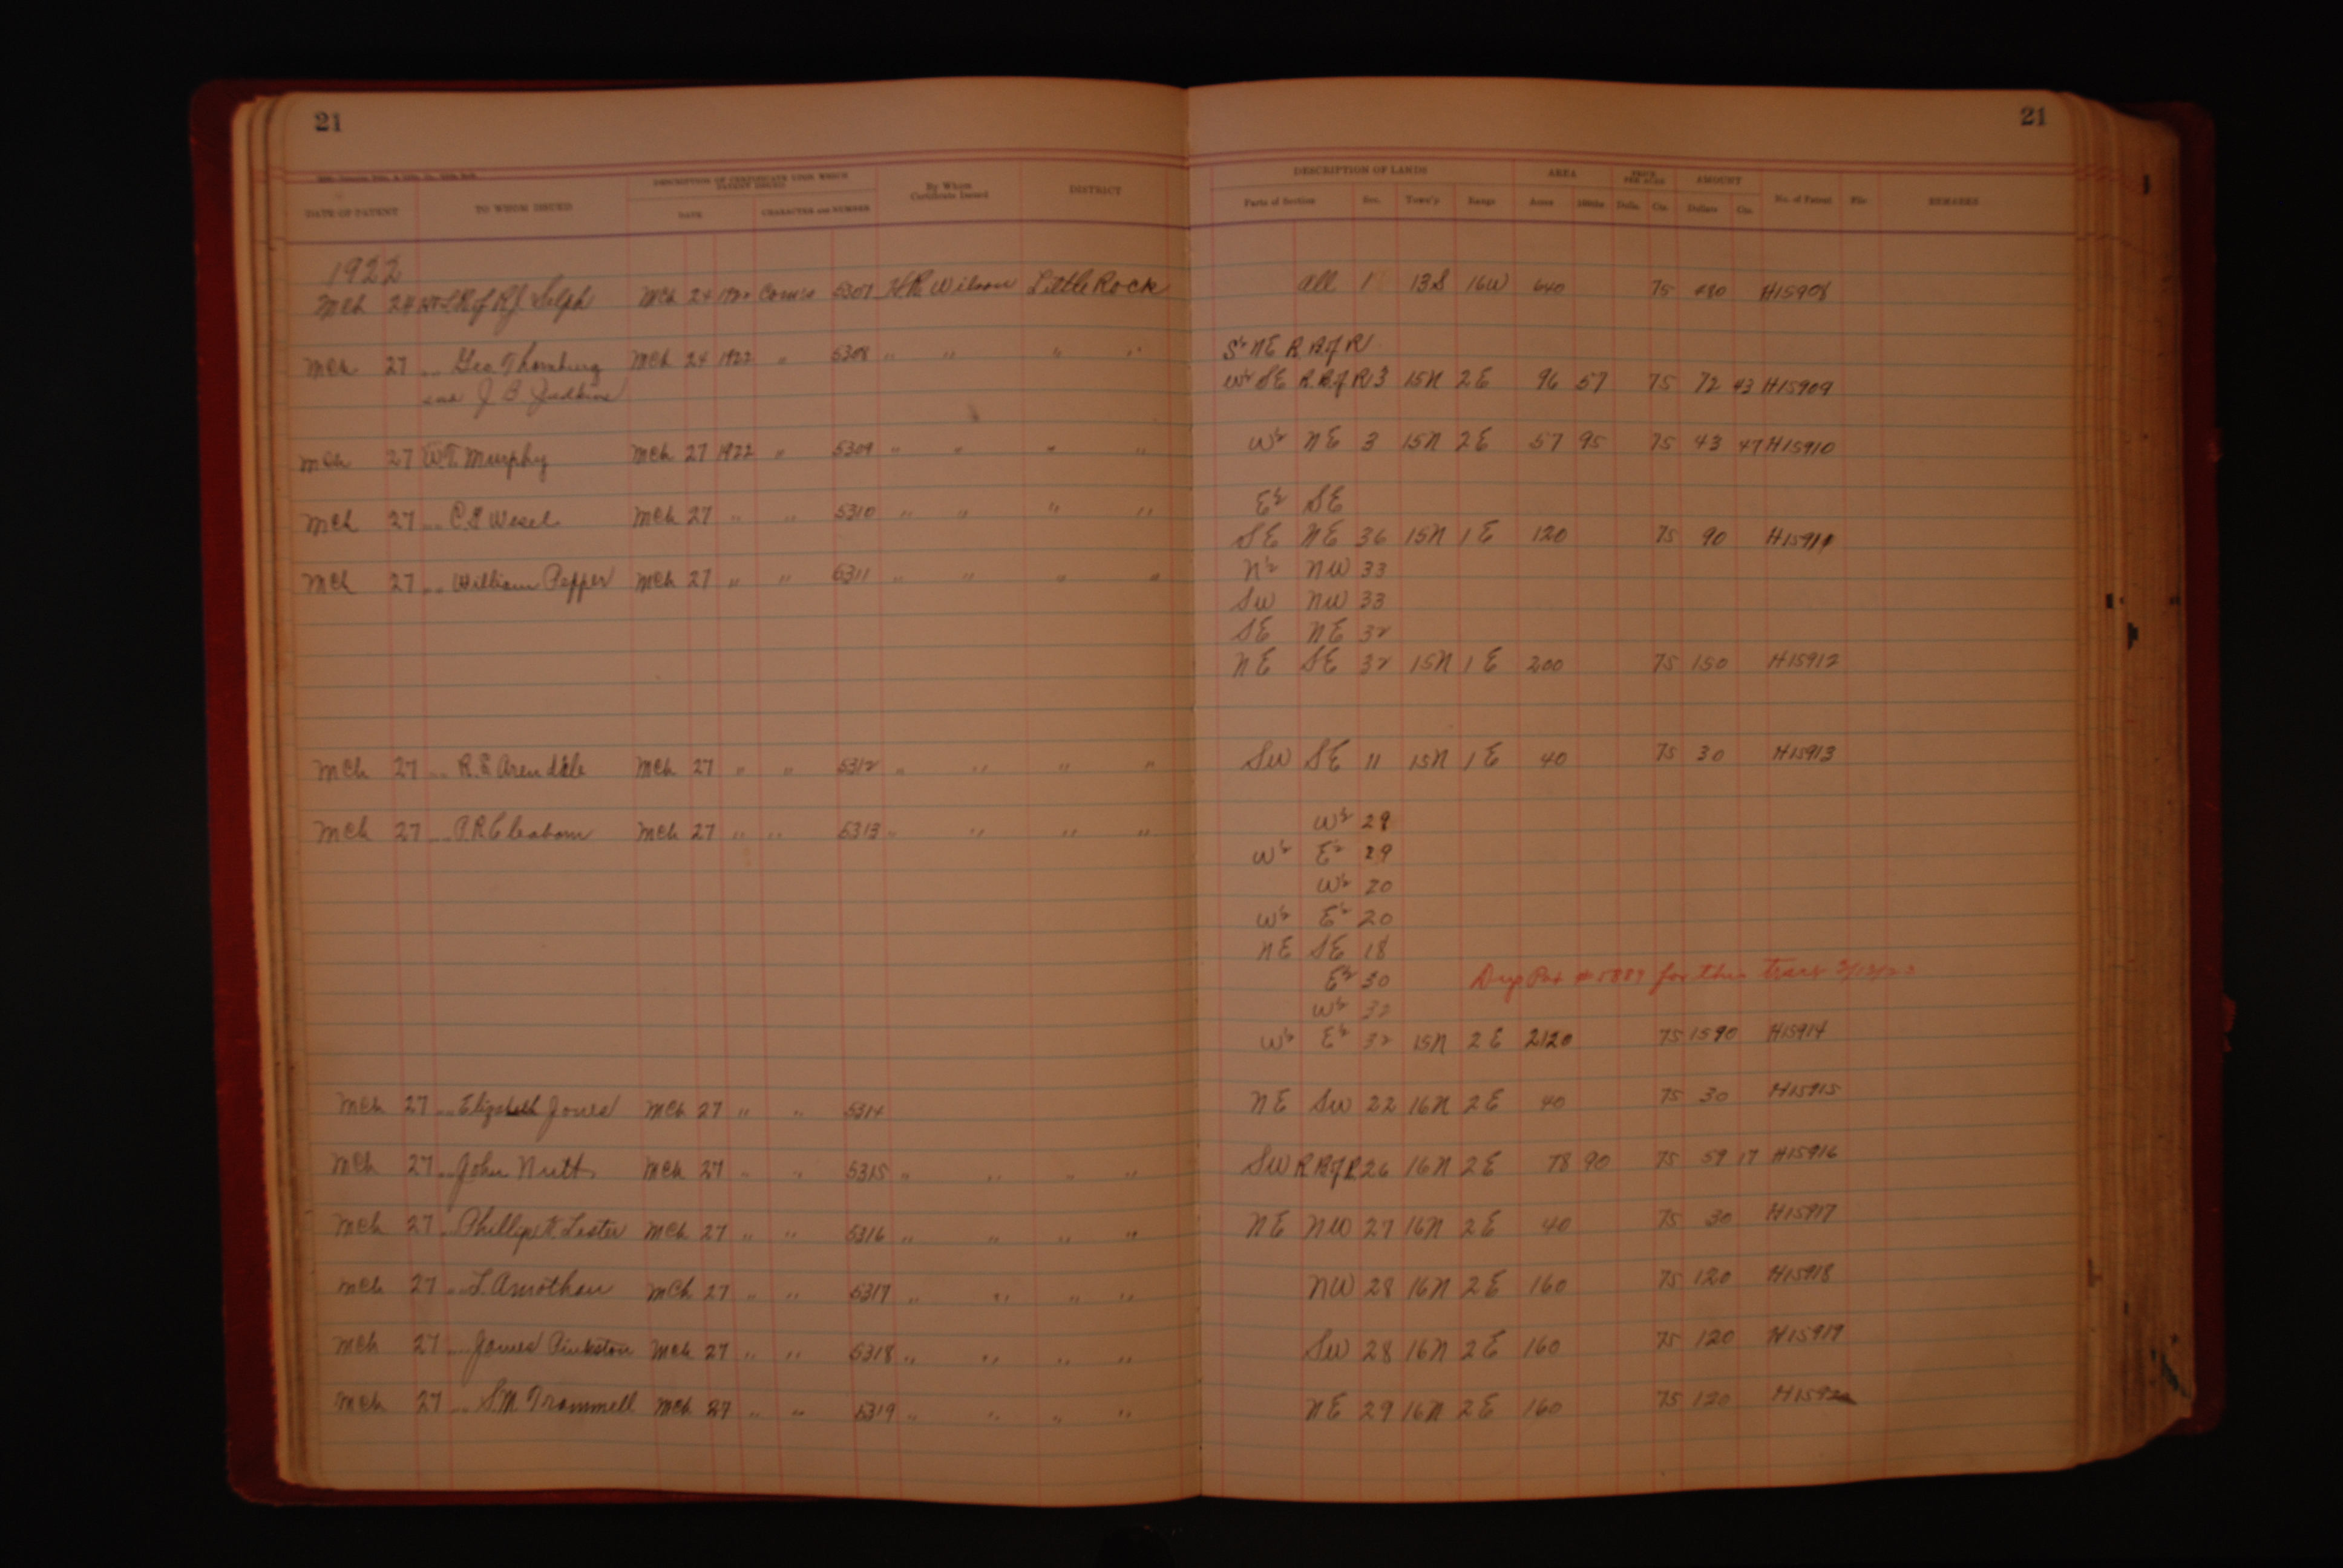 21 21
DATE OF PATENT TO WHOM ISSUED DESCRIPTION OF CERTIFICATE UPON WHICH PATENT ISSUED DATE CHARACTER AND NUMBER By Whom Certificate Issued DISTRICT DESCRIPTION OF LANDS Parts of Section Sec. Town'p Range AREA Acres 100ths PRICE PER ACRE Dolls. Cts. AMOUNT Dollars Cts. No. of Patent File REMARKS
1922
Mch 24 Selph Mch 24 Com'r 5307 H.R. Wilson Little Rock All 1 13S 16W 640 75 480 H15908
Mch 27 " Geo. Thornburg Mch 24 1922 " 5308 " " " " S½ NE R R of R
and J B Judkins W½ SE R R of R 3 15N 2E 96 57 75 72 43 H15909
Mch 27 W.T. Murphy Mch 27 1922 " 5309 " " " " W½ NE 3 15N 2E 57 95 75 43 47 H15910
E½ SE
Mch 27 " Wesel Mch 27 " " 5310 " " " " SE NE 36 15N 1E 120 75 90 H15911
Mch 27 " William Pepper Mch 27 " " 5311 " " " " N½ NW 33
SW NW 33
SE NE 32
NE SE 32 15N 1E 200 75 150 H15912
Mch 27 " R.E. Arendale Mch 27 " " 5312 " " " " SW SE 11 15N 1E 40 75 30 H15913
Mch 27 " P.R. Mch 27 " " 5313 " " " " W½ 29
W½ E½ 29
W½ 20
W½ E½ 20
NE SE 18
E½ 30 for this tract
W½ 32
W½ E½ 32 15N 2E 2120 75 1590 H15914
Mch 27 " Elizabeth Jones Mch 27 " " 5314 NE SW 22 16N 2E 40 75 30 H15915
Mch 27 " John Nutt Mch 27 " " 5315 " " " " SW R R of R 26 16N 2E 78 90 75 59 17 H15916
Mch 27 " Phillip Lester Mch 27 " " 5316 " " " " NE NW 27 16N 2E 40 75 30 H15917
Mch 27 " Mch 27 " " 5317 " " " " NW 28 16N 2E 160 75 120 H15918
Mch 27 " James Pinkston Mch 27 " " 5318 " " " " SW 28 16N 2E 160 75 120 H15919
Mch 27 " S.M. Trammell Mch 27 " " 5319 " " " " NE 29 16N 2E 160 75 120 H15920